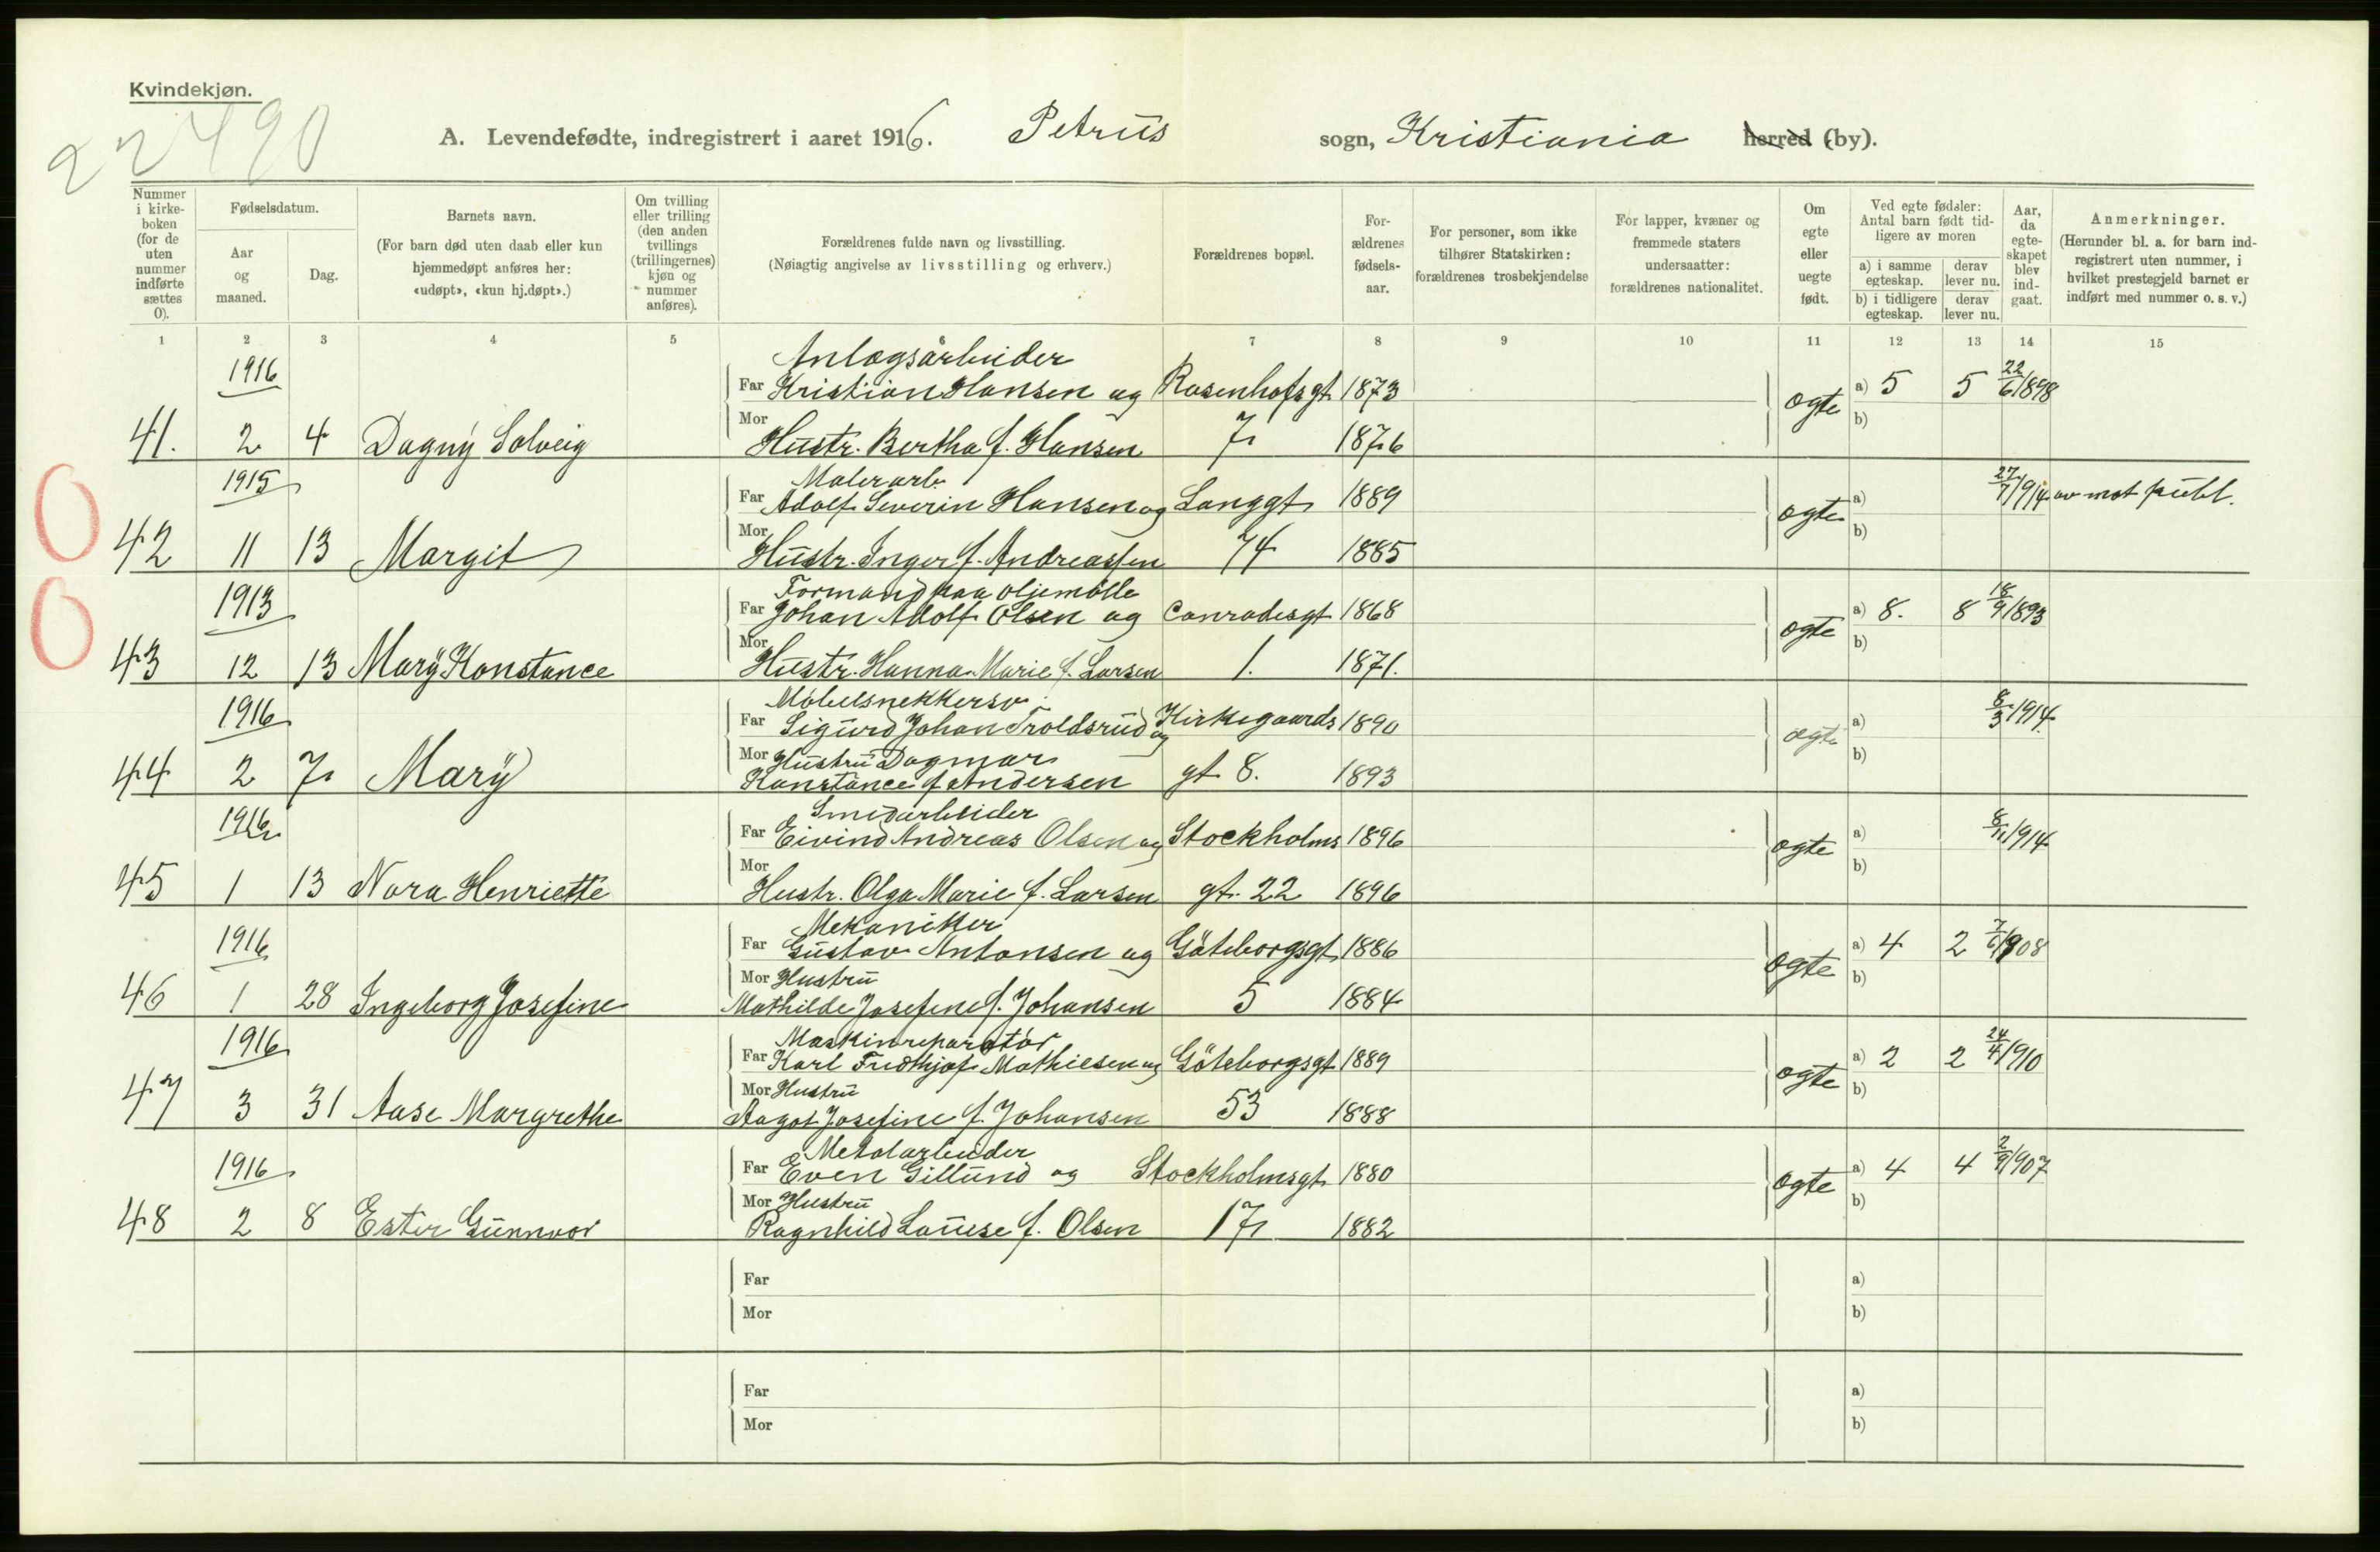 Kvindekjøn.
22490
A. Levendefødte, indregistrert i aaret 1916. Petrus sogn, Kristiania herred (by).
Nummer i kirkeboken (for de uten nummer indførte sættes 0).
Fødselsdatum.
Aar og maaned.
Dag.
Barnets navn.
(For barn død uten daab eller kun hjemmedøpt anføres her: «udøpt», «kun hj.døpt».)
Om tvilling eller trilling (den anden tvillings (trillingernes) kjøn og nummer anføres).
Forældrenes fulde navn og livsstilling.
(Nøiagtig angivelse av livsstilling og erhverv.)
Forældrenes bopæl.
Forældrenes fødselsaar.
For personer, som ikke tilhører Statskirken: forældrenes trosbekjendelse
For lapper, kvæner og fremmede staters undersaatter: forældrenes nationalitet.
Om egte eller uegte født.
Ved egte fødsler: Antal barn født tidligere av moren
a) i samme egteskap. derav lever nu.
b) i tidligere egteskap. derav lever nu.
Aar, da egteskapet blev indgaat.
Anmerkninger.
(Herunder bl. a. for barn indregistrert uten nummer, i hvilket prestegjeld barnet er indført med nummer o. s. v.)
1 2 3 4 5 6 7 8 9 10 11 12 13 14 15
1916 Anlægsarbeider
Far Kristian Hansen og Rosenhofsgt 1873 ægte a) 5 5 22/6 1898
41. 2 4 Dagny Solveig Mor Hustr. Bertha f. Hansen 7 1876 b)
1915 Malerarb.
Far Adolf Severin Hansen og Langgt 1889 ægte a) 27/7 1914 av mot publ.
42 11 13 Margit Mor Hustr. Inger f. Andreassen 74 1885 b)
1913 Formand paa oljemølle
Far Johan Adolf Olsen og Conradisgt 1868 ægte a) 8. 8 18/9 1893
43 12 13 Mary Konstance Mor Hustr. Hanna Marie f. Larsen 1. 1871. b)
1916 Møbelsnekkersv.
Far Sigurd Johan Troldsrud og Kirkegaards 1890 ægte a) 8/3 1914
Mor Hustru Dagmar
44 2 7 Mary Konstance f. Andersen gt 8. 1893 b)
1916 Smedarbeider
Far Eivind Andreas Olsen og Stockholms 1896 ægte a) 8/11 1914
45 1 13 Nora Henriette Mor Hustr. Olga Marie f. Larsen gt. 22 1896 b)
1916 Mekaniker
Far Gustav Antonsen og Gøteborgsgt 1886 ægte a) 4 2 7/6 1908
Mor Hustru
46 1 28 Ingeborg Josefine Mathilde Josefine f. Johansen 5 1884 b)
1916 Maskinreparatør
Far Karl Fridthjof Mathiesen og Göteborgsgt 1889 ægte a) 2 2 24/4 1910
Mor Hustru
47 3 31 Aase Margrethe Aagot Josefine f. Johansen 53 1888 b)
1916 Metalarbeider
Far Even Gillund og Stockholmsgt 1880 ægte a) 4 4 2/9 1907
Mor Hustru
48 2 8 Ester Gunnvor Ragnhild Louise f. Olsen 17 1882 b)
Far a)
Mor b)
Far a)
Mor b)
0
0